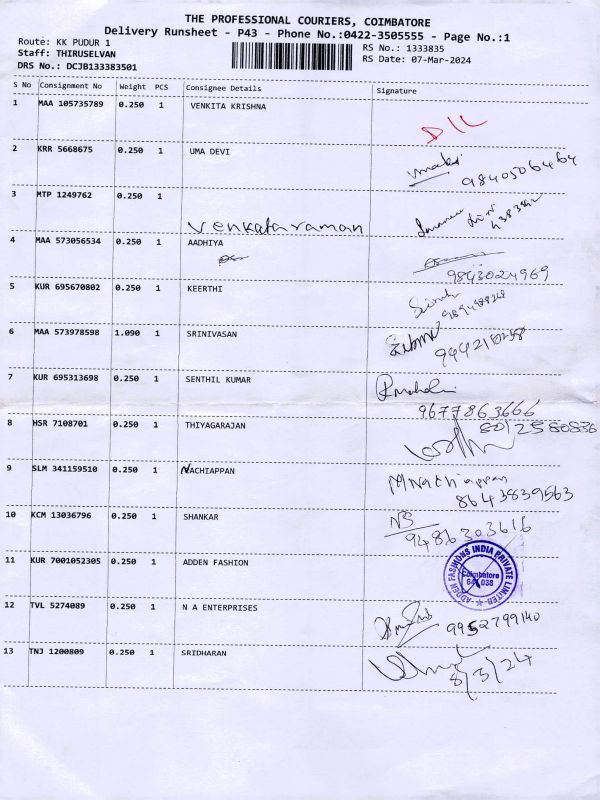 THE PROFESSIONAL COURIERS, COIMBATORE
Delivery Runsheet - P43 - Phone No.:0422-3505555 - Page No.:1
Route: KK PUDUR 1
RS No.: 1333835
Staff: THIRUSELVAN
RS Date: 07-Mar-2024
DRS No.: DCJB133383501
S No Consignment No Weight PCS Consignee Details Signature
1 MAA 105735789 0.250 1 VENKITA KRISHNA
2 KRR 5668675 0.250 1 UMA DEVI
9840506464
3 MTP 1249762 0.250 1
Venkataraman
4 MAA 573056534 0.250 1 AADHIYA
9843024969
5 KUR 695670802 0.250 1 KEERTHI
6 MAA 573978598 1.090 1 SRINIVASAN
7 KUR 695313698 0.250 1 SENTHIL KUMAR
9677863666
8 HSR 7108701 0.250 1 THIYAGARAJAN
8012580836
9 SLM 341159510 0.250 1 NACHIAPPAN
MNachiappan
8643839563
10 KCM 13036796 0.250 1 SHANKAR
NS
9486303616
11 KUR 7001052305 0.250 1 ADDEN FASHION
ADDEN FASHIONS INDIA PRIVATE LIMITED
Coimbatore
641 038
12 TVL 5274089 0.250 1 N A ENTERPRISES
9952799140
13 TNJ 1200809 0.250 1 SRIDHARAN
8/3/24